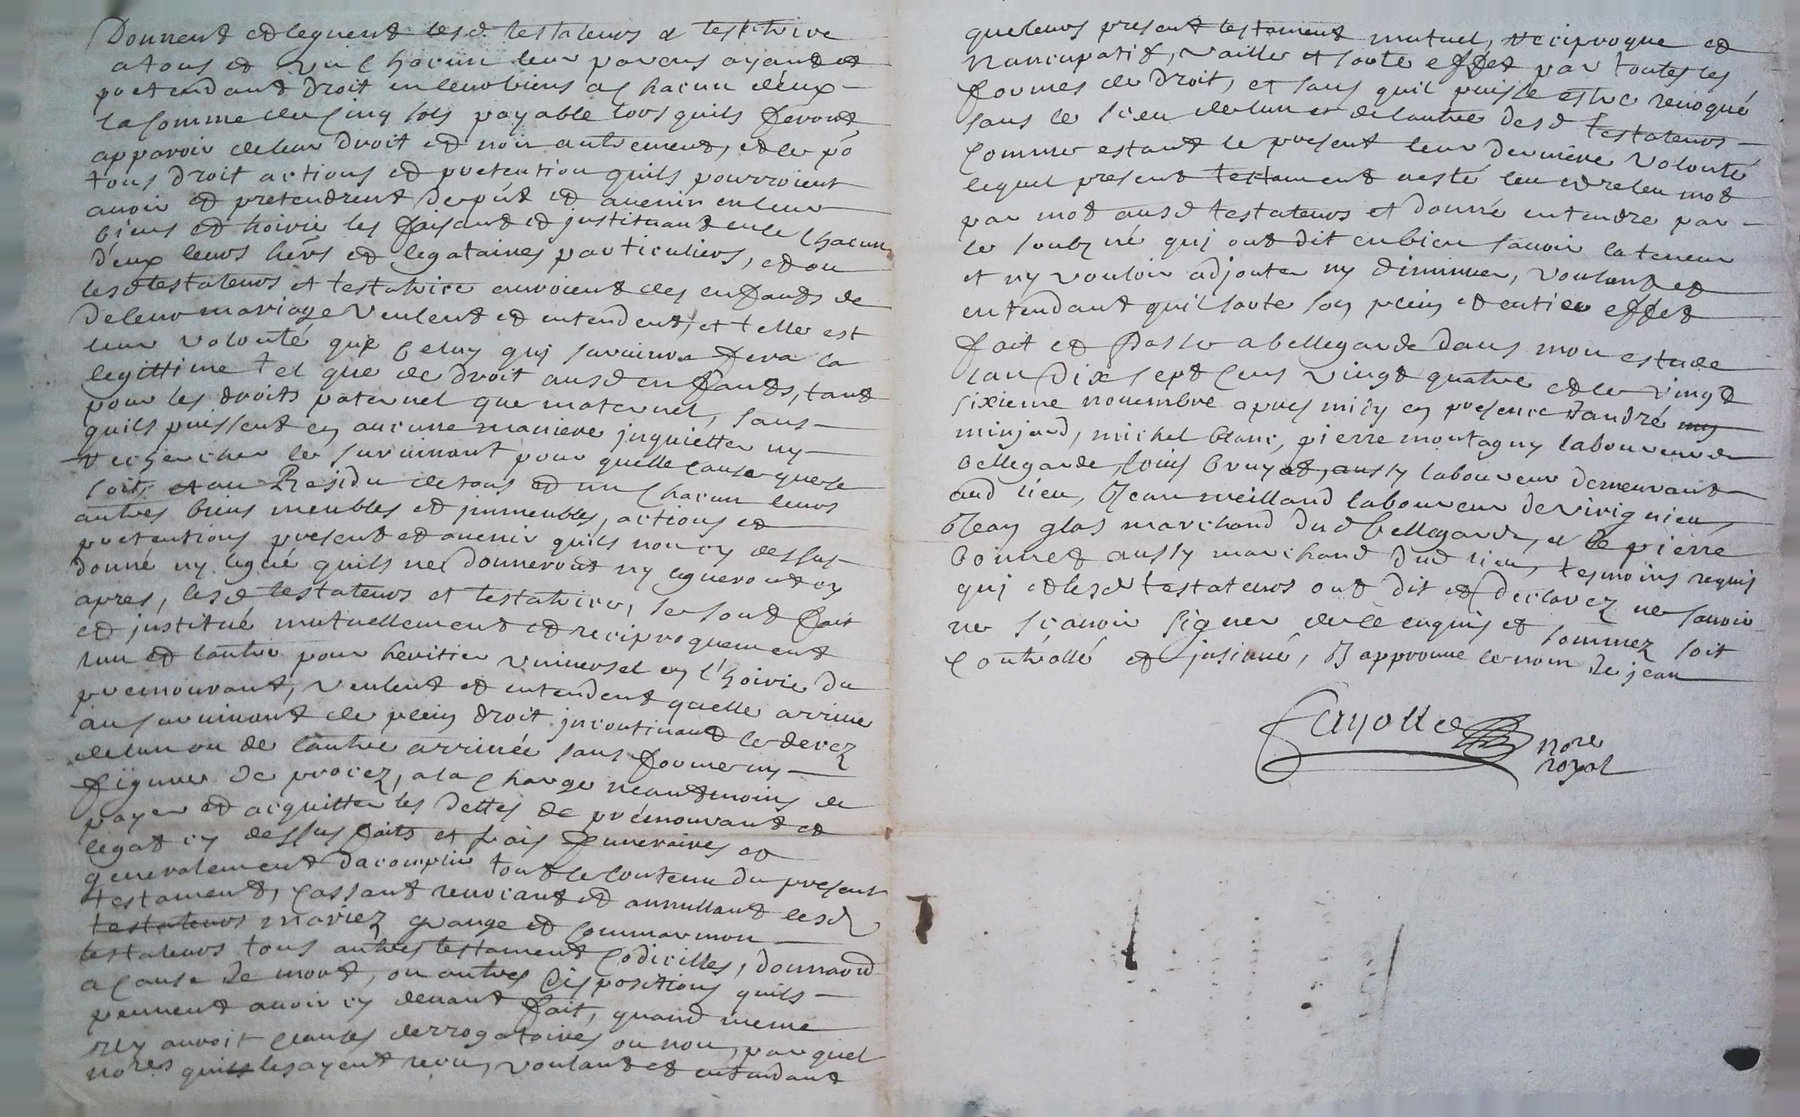 Donnent et leguent lesd testateurs et testatrice
a tous et un chacun leur parens ayant et
pretendant droit en leurs biens a chacun deux
la somme de cinq sols payable lors quils feront
apparoir de leur droit et non autrement, et ce po
tous droit actions et pretention quils pourroient
avoir et pretendrent de pnt et avenir en leur
biens et hoirie les faisant et jnstituant en ce chacun
d'eux leurs hers et legataires particuliers, et ou
lesd testateurs et testatrice auroient des enfants de
de leur mariage veulent et entendent, et telle est
leur volonté que celuy qui survivra fera la
legittime tel que de droit ausd enfants, tant
pour les droits paternel que maternel, sans
quils puissent en aucune maniere jnquietter ny
rechercher le survivant pour quelle cause que ce
soit, et au Residu de tous et un chacun leurs
autres biens meubles et jmmeubles, actions et
pretentions present et avenir quils non cy dessus
donné ny legué quils ne donneront ny legueront cy
apres, lesd testateurs et testatrice, se sont fait
et jnstitué mutuellement et reciproquement
lun et lautre pour heritier universel en l'hoirie du
premourant, veulent et entendent quelle arrive
au survivant de plein droit jncontinant le decez
de lun ou de lautre arrivée sans forme ny
figure de procez, a la charge neantmoins de
payer et acquitter les dettes de prémourant et
legat cy dessus faits et frais funeraires et
generalement dacomplir tout le contenu du present
testament, cassant revocant et annullant lesd
testateurs mariez grange et commarmon
testateurs tous autres testament codicilles, donnaõn
a cause de mort, ou autres dispositions quils
peuvent avoir cy devant fait, quand meme
rly auroit clauses derrogatoires ou non, par quel
nores quils les ayent receu, voulant et entendant
que leurs present testament mutuel, reciproque et
nuncupatif, vaille et sorte effet par toutes les
formes de droit, et sans quil puisse estre revoqué
sans le sceu de lun et de lautre desd testateurs
comme estant le present leur derniere volonté
lequel present testament a esté leu et releu mot
par mot ausd testateurs et donné entendre par
le soubzné qui ont dit en bien savoir la teneur
et ny vouloir adjouter ny diminuer, voulant et
entendant quil sorte son plein et entier effet
fait et Passé a bellegarde dans mon estude
lan dix sept cens vingt quatre et le vingt
sixieme novembre apres midy en presence dandré
minjard, michel blanc, pierre montagny laboureur de
bellegarde, louis bruyet, aussy laboureur demeurant
aud lieu, Jean meilland laboureur de virignieu
Jean glas marchand dud bellegarde, et de pierre
bonnet aussy marchand dud lieu, tesmoins requis
qui et lesd testateurs ont dit et declarez ne savoir
ne sçavoir signer de ce enquis et sommez soit
controllé et jnsinué, J approuve le nom de jean
Fayolle
nore
royal